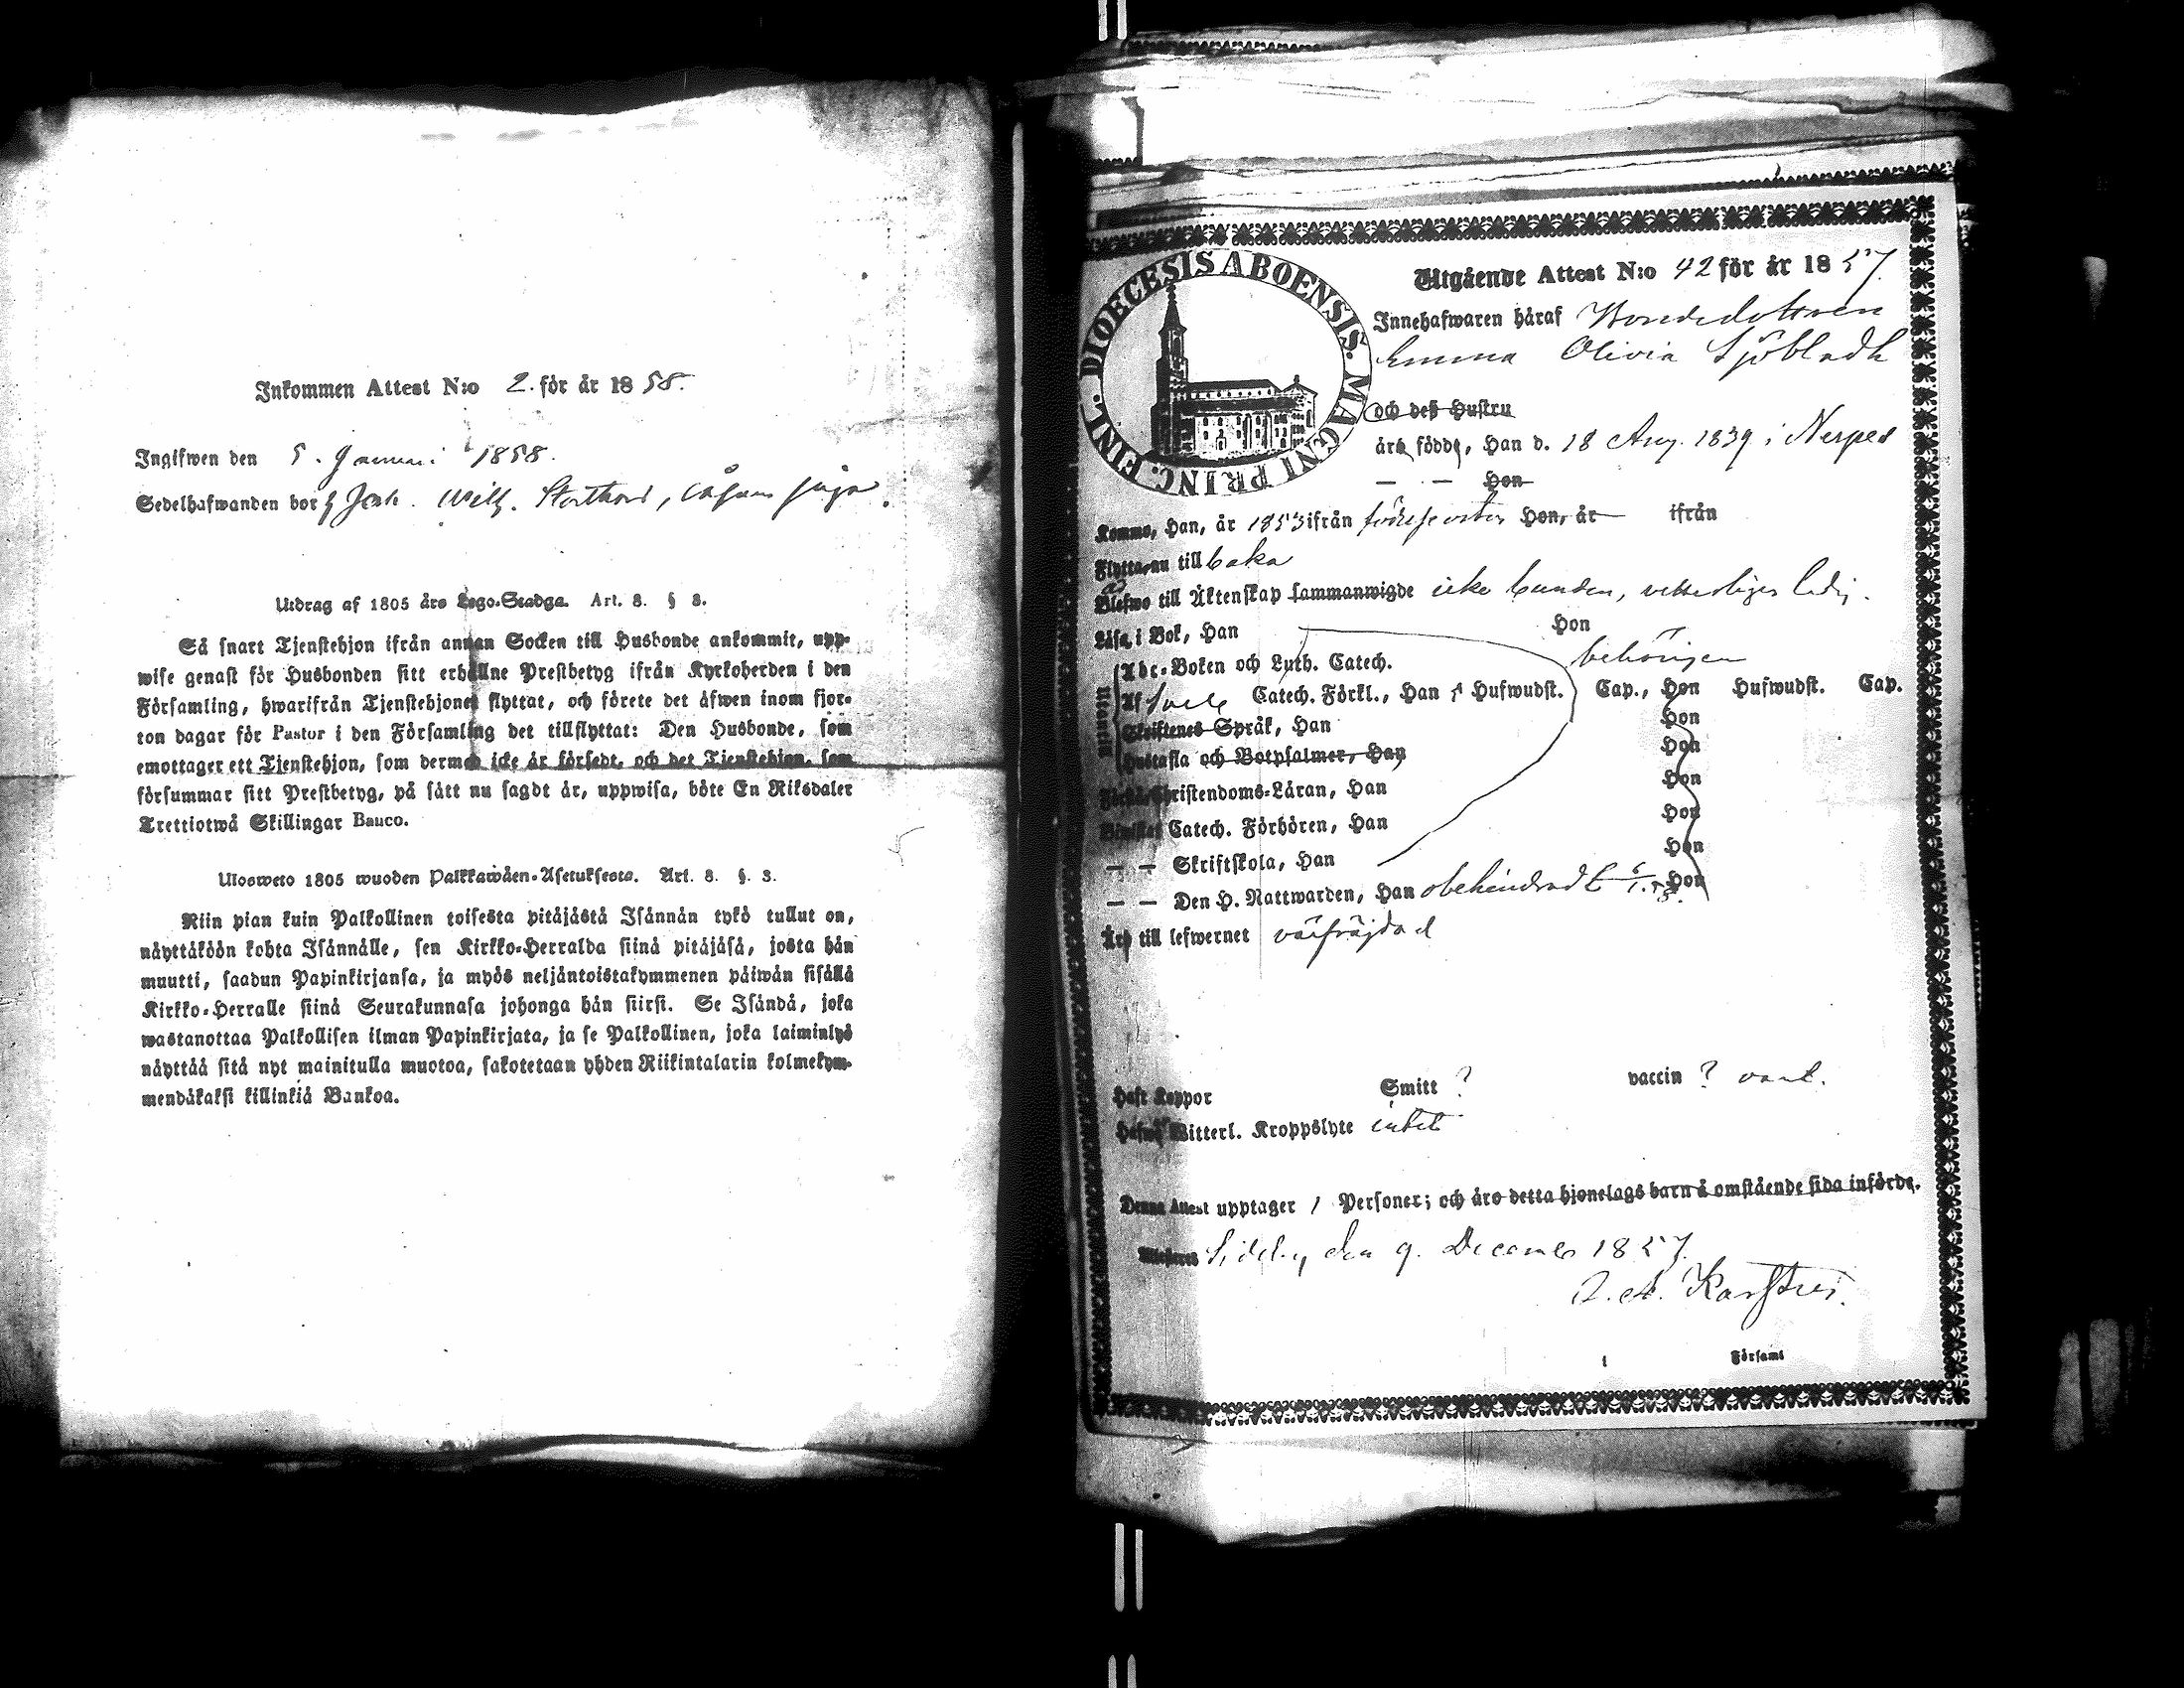 Inkommen Attest N:o 2. för år 1858.
Ingifwen den 5. Januari 1858.
Sedelhafwanden bor hos Willh. piga.
Utdrag af 1805 års Lego-Stadga. Art. 8. § 3.
Så snart Tjenstehjon ifrån annan Socken till Husbonde ankommit, upp-
wise genast för Husbonden sitt erhållne Prestbetyg ifrån Kyrkoherden i den
Församling, hwarifrån Tjenstehjonet flyttat, och förete det äfwen inom fjor-
ton dagar för Pastor i den Församling det tillflyttat: Den Husbonde, som
emottager ett Tjenstehjon, som dermed icke är försedt, och det Tjenstehjon, som
försummar sitt Prestbetyg, på sätt nu sagdt är, uppwisa, böte En Riksdaler
Trettiotwå Skillingar Banco.
Ulosweto 1805 wuoden Palkkawäen-Asetuksesta. Art. 8. §. 3.
Niin pian kuin Palkollinen toisesta pitäjästä Isännän tykö tullut on,
näyttäköön kohta Isännälle, sen Kirkko-Herralda siinä pitäjäsä, josta hän
muutti, saadun Papinkirjansa, ja myös neljäntoistakymmenen päiwän sisällä
Kirkko-Herralle siinä Seurakunnasa johonga hän siirsi. Se Isändä, joka
wastanottaa Palkollisen ilman Papinkirjata, ja se Palkollinen, joka laiminlyö
näyttää sitä nyt mainitulla muotoa, sakotetaan yhden Riikintalarin kolmekym-
mendäkaksi killinkiä Bankoa.
DIOECESIS ABOENSIS. MAGNI PRINC. FINL.
Utgående Attest N:o 42 för år 1857.
Innehafwaren häraf Bondedottren
Emma Olivia Sjöbladh
och deß Hustru
äro födde, Han d. 18 Aug. 1839 i Nerpes
— — Hon
Kommo, Han, år 1853 ifrån födelseorten Hon, år ifrån
Flytta nu till baka
Blefwo till Äktenskap sammanwigde icke bunden, vetterligen ledig.
Läsa i Bok, Han Hon
behörigen
Utantill
Abc-Boken och Luth. Catech.
Af Catech. Förkl., Han Hufwudst. Cap., Hon Hufwudst. Cap.
Skriftenes Språk, Han Hon
Hustafla och Botpsalmer, Han Hon
Förstå Christendoms-Läran, Han Hon
Biwistat Catech. Förhören, Han Hon
— — Skriftskola, Han Hon
— — Den H. Nattwarden, Han obehindrad Hon
Äro till lefwernet välfräjdad
Haft Koppor Smitt ? vaccin ?
Hafwa Witterl. Kroppslyte intet
Denna Attest upptager 1 Personer; och äro detta hjonelags barn å omstående sida införde.
Sideby den 9. December 1857.
Församl